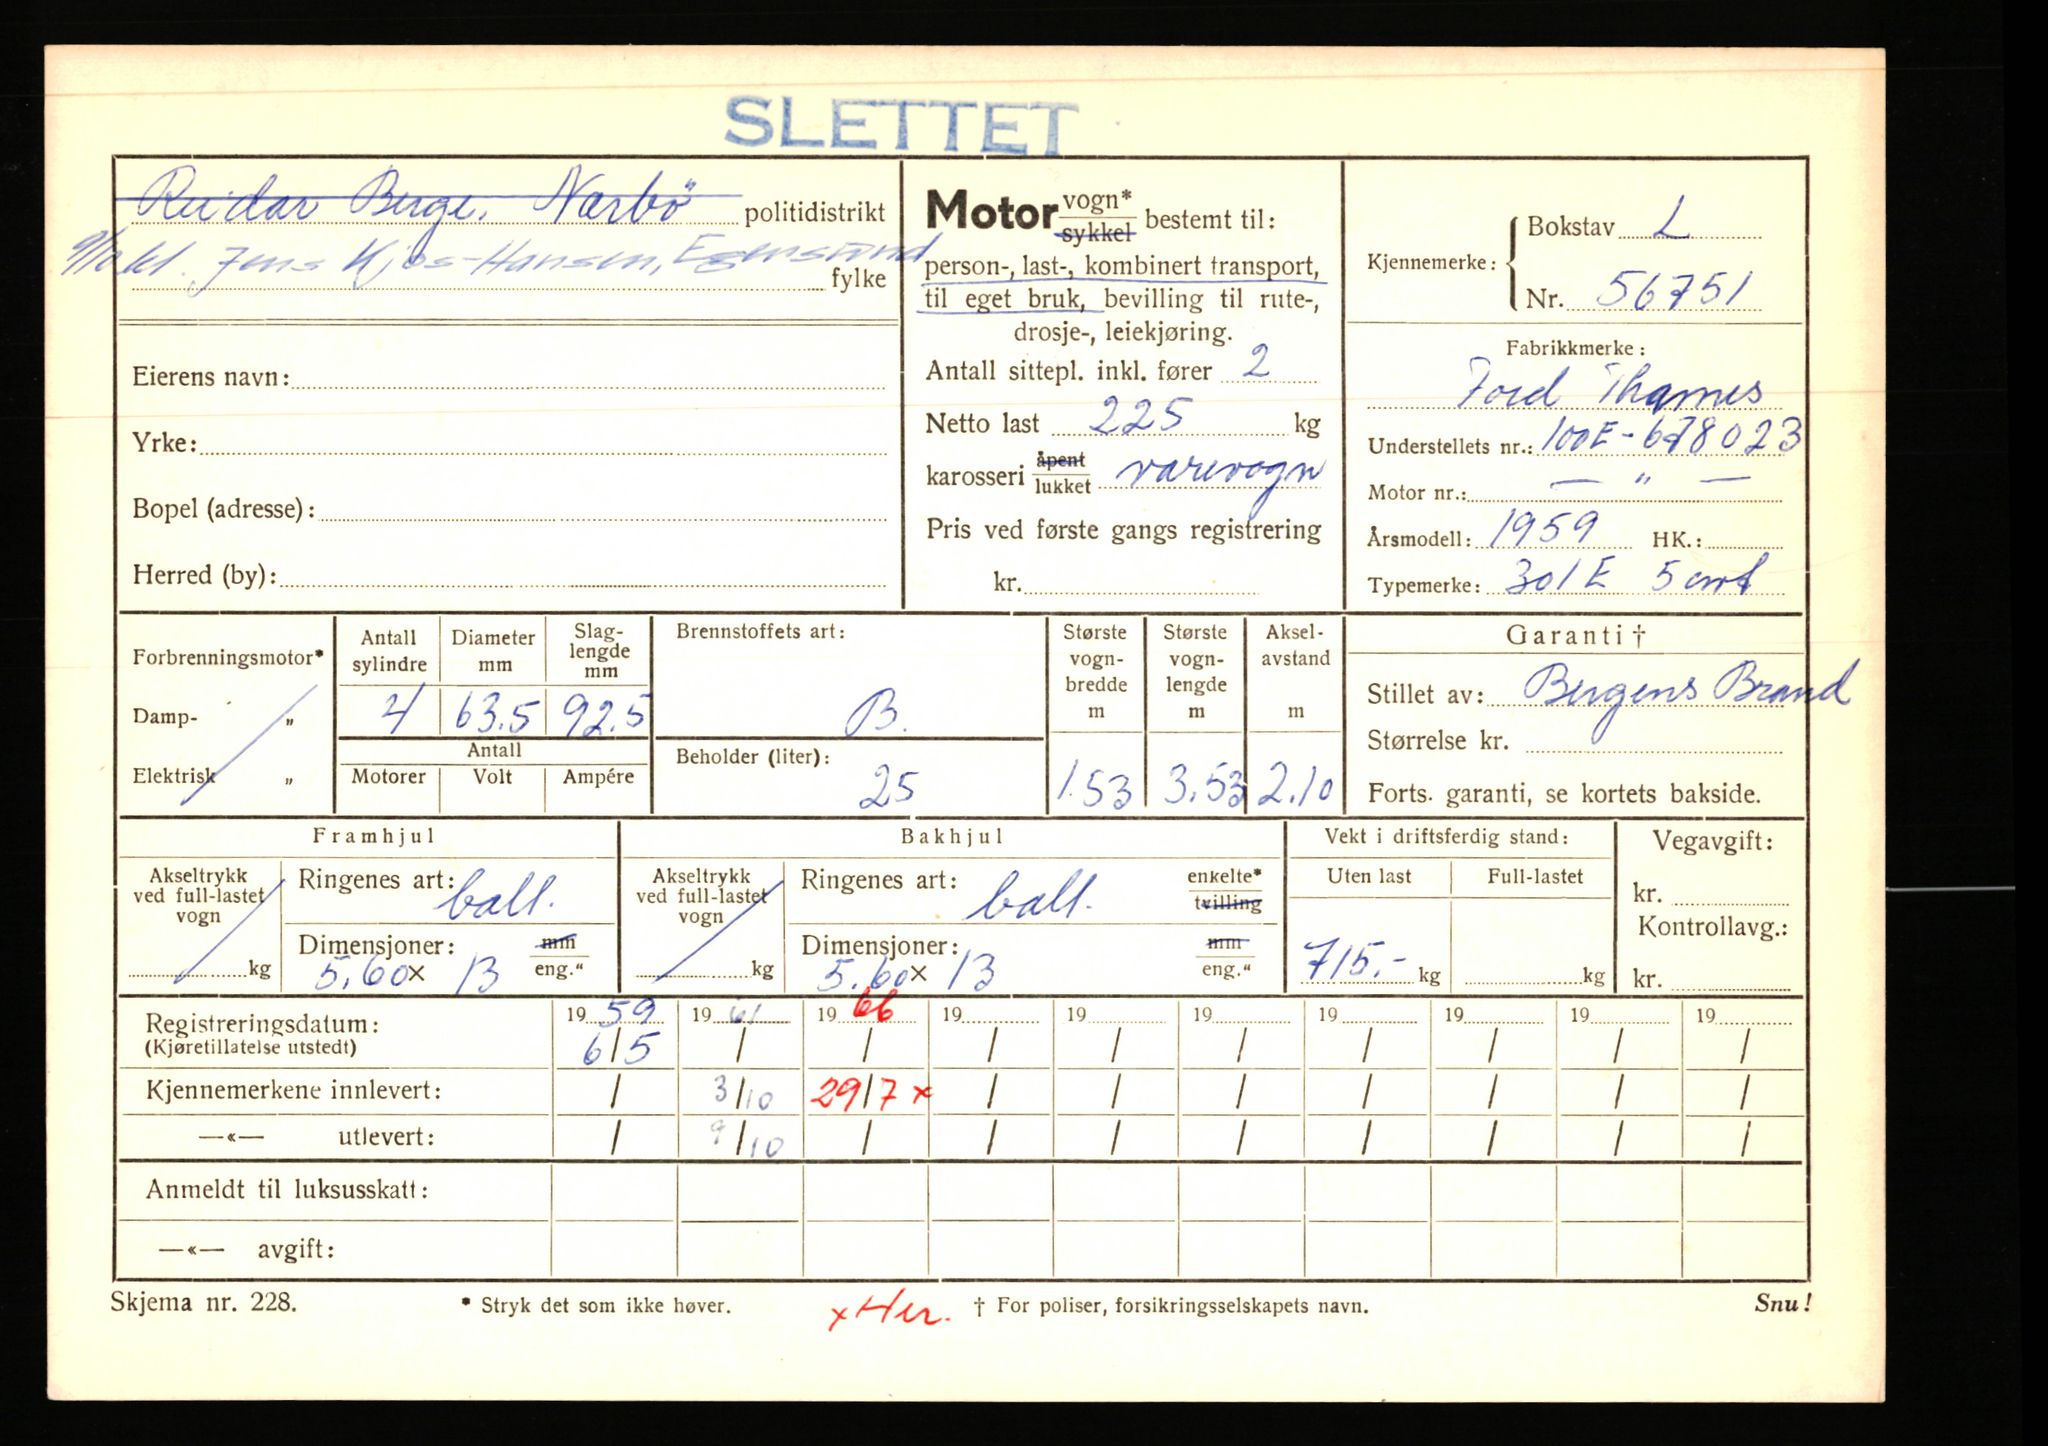 SLETTET
Reidar Berge, Nærbö politidistrikt
Jens Kjøs-Hansen, Egersund
fylke
Eierens navn:
Yrke:
Bopel (adresse):
Herred (by):
Motor vogn* sykkel bestemt til:
person-, last-, kombinert transport,
til eget bruk, bevilling til rute-,
drosje-, leiekjøring.
Antall sittepl. inkl. fører 2
Netto last 225 kg
karosseri åpent lukket varevogn
Pris ved første gangs registrering
kr.
Kjennemerke: Bokstav L
Nr. 56751
Fabrikkmerke:
Ford Thames
Understellets nr.: 100E-678023
Motor nr.: — " —
Årsmodell: 1959 HK.:
Typemerke: 301E 5 cwt
Forbrenningsmotor*
Damp- „
Elektrisk „
Antall sylindre 4
Diameter mm 63.5
Slag-lengde mm 92.5
Antall
Motorer Volt Ampére
Brennstoffets art:
B.
Beholder (liter):
25
Største vogn-bredde m 1.53
Største vogn-lengde m 3.53
Aksel-avstand m 2.10
Garanti †
Stillet av: Bergens Brand
Størrelse kr.
Forts. garanti, se kortets bakside.
Framhjul
Akseltrykk ved full-lastet vogn
kg
Ringenes art: ball.
Dimensjoner: mm
5.60 x 13 eng."
Bakhjul
Akseltrykk ved full-lastet vogn
kg
Ringenes art: ball. enkelte* tvilling
Dimensjoner: mm
5.60 x 13 eng."
Vekt i driftsferdig stand:
Uten last Full-lastet
715.- kg kg
Vegavgift:
kr.
Kontrollavg.:
kr.
Registreringsdatum: 19 59 19 61 19 66 19 19 19 19 19 19 19
(Kjøretillatelse utstedt) 6/5 / / / / / / / / /
Kjennemerkene innlevert: / 3/10 29/7 x / / / / / / /
—«— utlevert: / 9/10 / / / / / / / /
Anmeldt til luksusskatt:
—«— avgift:
Skjema nr. 228. * Stryk det som ikke høver. x Her. † For poliser, forsikringsselskapets navn. Snu!